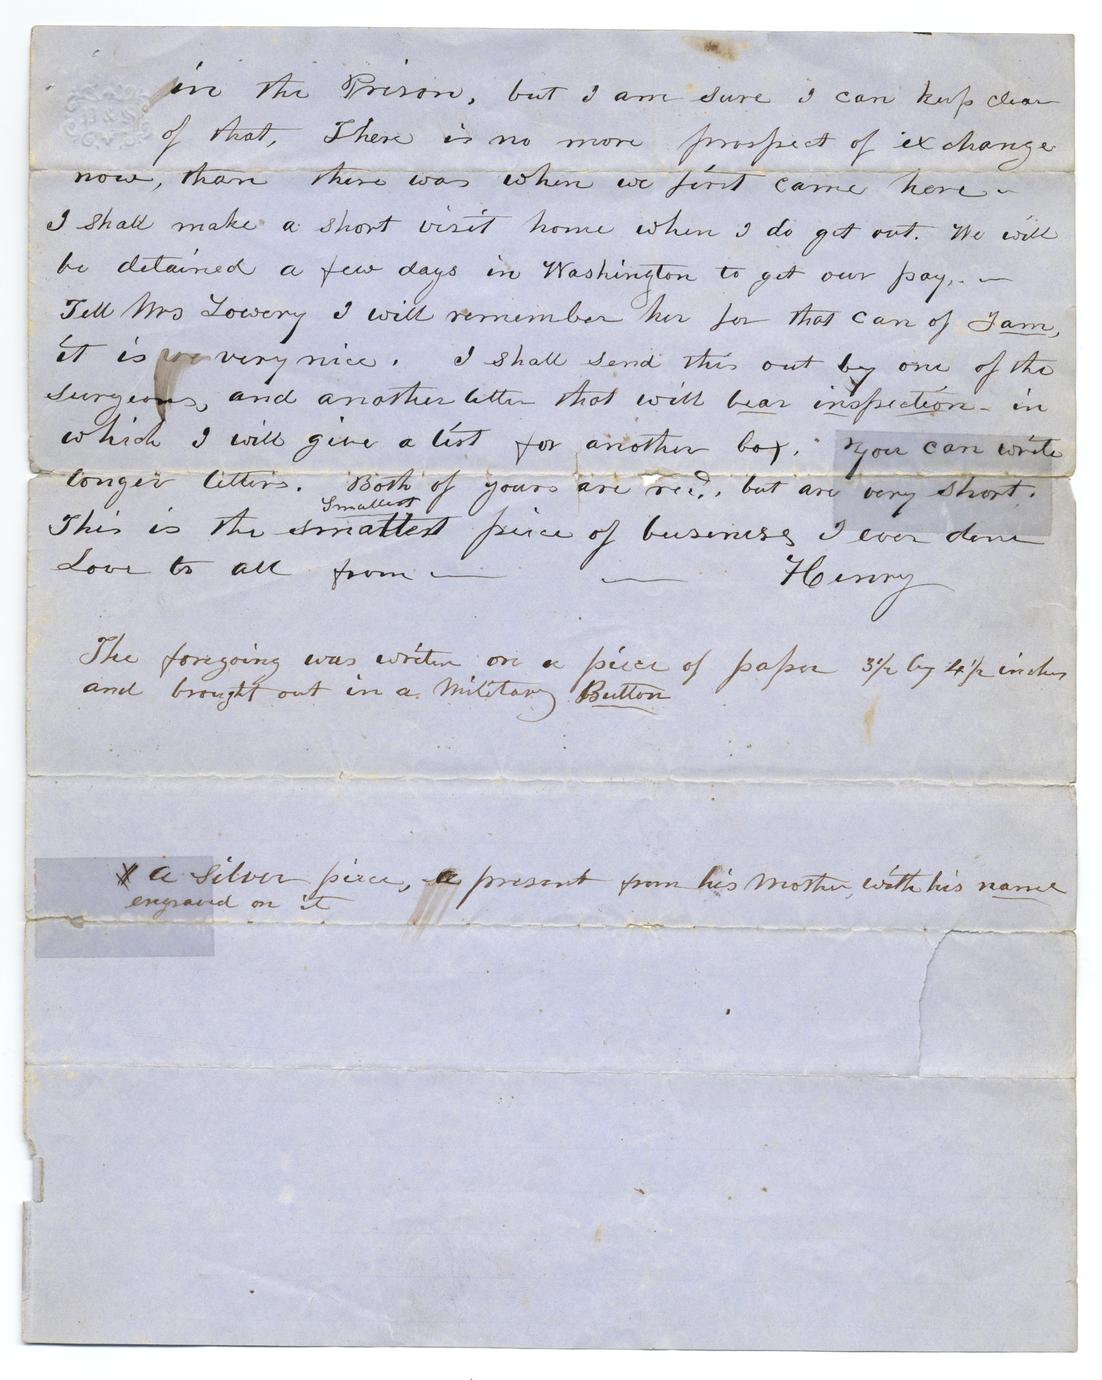 in the Prison, but I am sure I can keep clear
of that, There is no more prospect of exchange
now, than there was when we first came here -
I shall make a short visit home when I do get out. We will
be detained a few days in Washington to get our pay. -
Tell Mrs Lowery I will remember her for that can of Jam,
it is very nice. I shall send this out by one of the
surgeons, and another letter that will bear inspection - in
which I will give a list for another box. You can write
longer letters. Both of yours are recd. but are very short.
Smallest
This is the smallest piece of business I ever done
Love to all from — — Henry
The foregoing was written on a piece of paper 3½ by 4½ inches
and brought out in a Military Button
X a silver piece, a present from his Mother, with his name
engraved on it